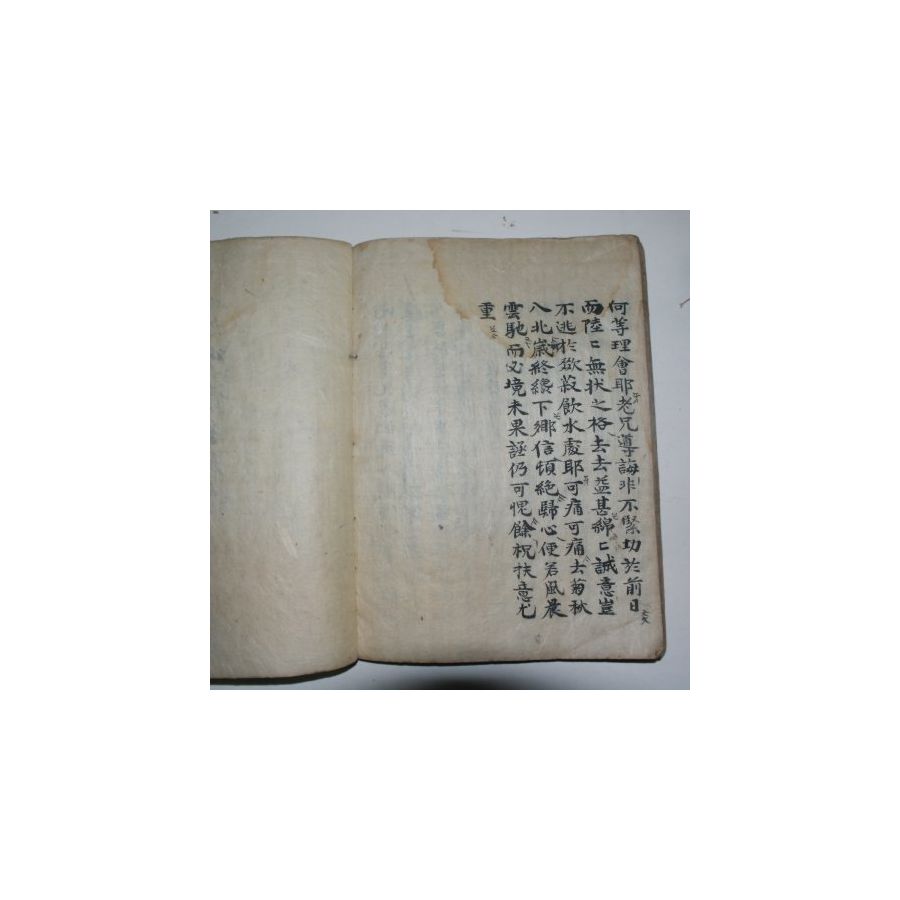 何等理會耶老兄導誨非不緊切於前日
而陸〻無狀之格去去益甚綿〻誠意豈
不逃於飲水處耶可痛可痛去菊秋
八北歲終纔下鄉信頓絕歸心便若風晨
雲馳而必境未果誣仍可愧餘祝扶意尤
重